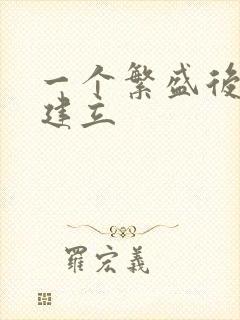 一个繁盛後
建立
羅宏義